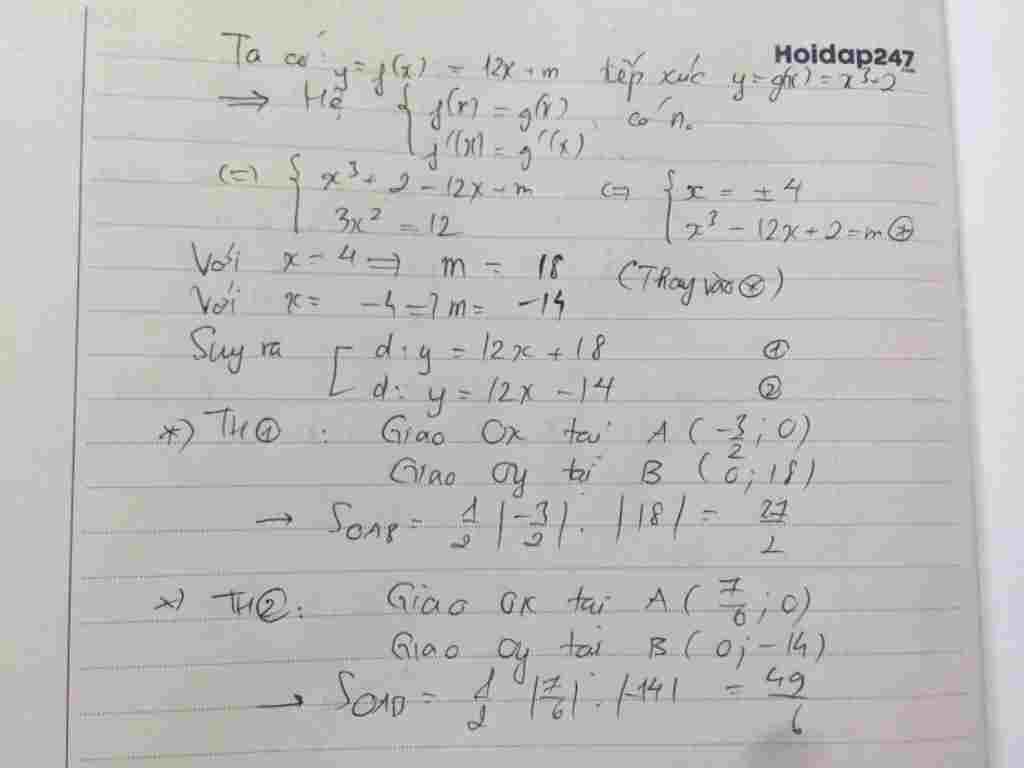 Hoidap247
Ta có: y = f(x) = 12x + m tiếp xúc y = g(x) = x³+2
⇒ Hệ { f(x) = g(x) có n₀
f'(x) = g'(x)
(=) { x³ + 2 - 12x = m (=) { x = ± 4
3x² = 12 x³ - 12x + 2 = m (*)
Với x = 4 => m = 18 (Thay vào (*))
Với x = -4 => m = -14
Suy ra [ d: y = 12x + 18 ①
d: y = 12x - 14 ②
*) TH①: Giao Ox tại A (-3/2; 0)
Giao Oy tại B (0; 18)
→ S_OAB = 1/2 |-3/2| . |18| = 27/2
*) TH②: Giao Ox tại A (7/6; 0)
Giao Oy tại B (0; -14)
→ S_OAB = 1/2 |7/6| . |-14| = 49/6